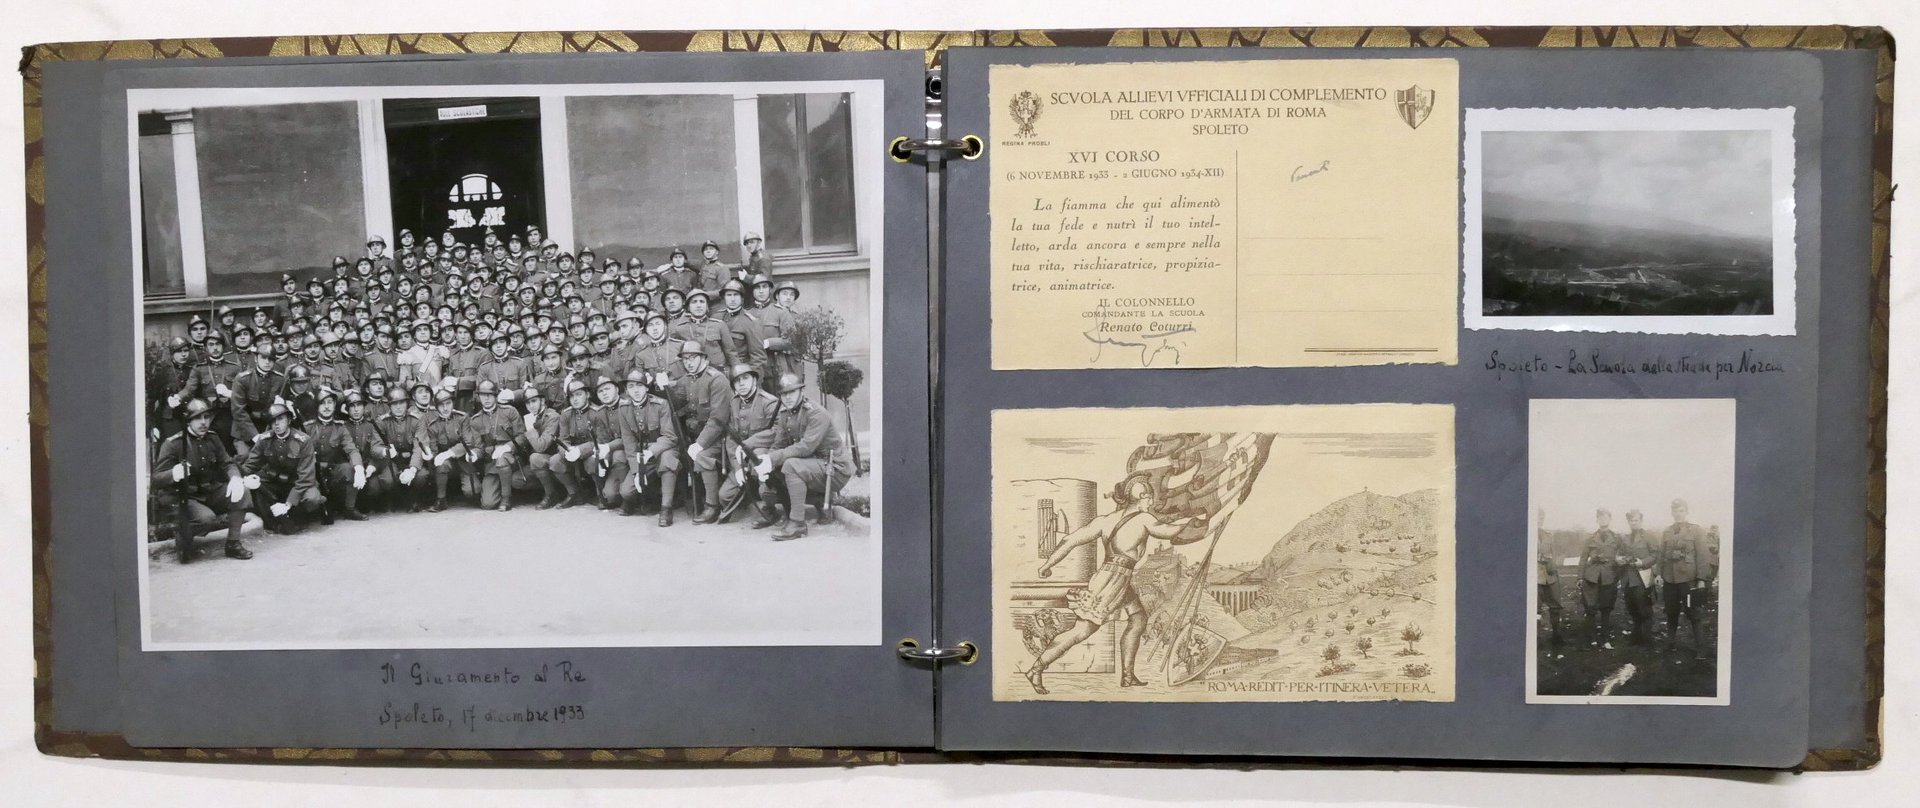 Il Giuramento al Re
Spoleto, 17 dicembre 1933
SCVOLA ALLIEVI VFFICIALI DI COMPLEMENTO
DEL CORPO D'ARMATA DI ROMA
SPOLETO
REGINA PROELI
XVI CORSO
(6 NOVEMBRE 1933 - 2 GIUGNO 1934-XII)
La fiamma che qui alimentò
la tua fede e nutrì il tuo intel-
letto, arda ancora e sempre nella
tua vita, rischiaratrice, propizia-
trice, animatrice.
IL COLONNELLO
COMANDANTE LA SCUOLA
Renato Coturri
"ROMA·REDIT·PER·ITINERA·VETERA"
Spoleto - La Scuola dalla strada per Norcia